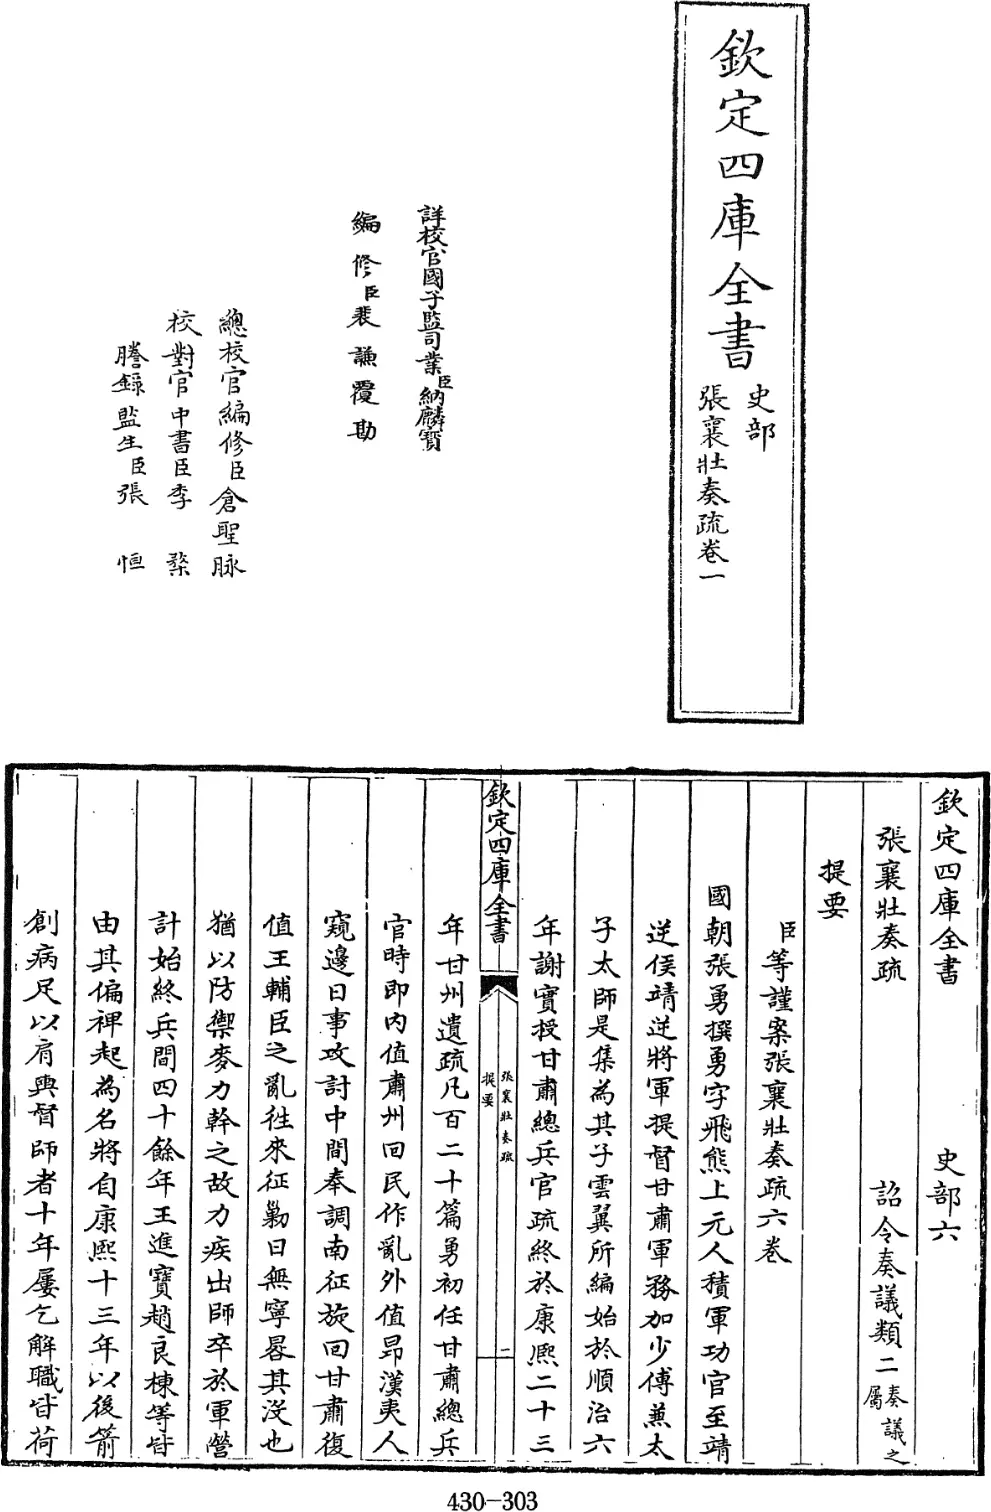 欽定四庫全書
史部
張襄壯奏疏卷一
詳校官國子監司業臣納麟寶
編修臣裴謙覆勘
總校官編修臣倉聖脉
校對官中書臣李燊
謄錄監生臣張恒
欽定四庫全書 史部六
張襄壯奏疏 詔令奏議類二奏議之屬
提要
臣等謹案張襄壯奏疏六卷
國朝張勇撰勇字飛熊上元人積軍功官至靖
逆侯靖逆將軍提督甘肅軍務加少傅兼太
子太師是集為其子雲翼所編始於順治六
年謝實授甘肅總兵官疏終於康熙二十三
欽定四庫全書
張襄壯奏疏
提要
二
年甘州遺疏凡百二十篇勇初任甘肅總兵
官時即内值肅州回民作亂外值昂漢夷人
窺邊日事攻討中間奉調南征旋回甘肅復
值王輔臣之亂往來征勦日無寧晷其沒也
猶以防禦麥力幹之故力疾出師卒於軍營
計始終兵間四十餘年王進寶趙良棟等皆
由其偏裨起為名將自康熙十三年以後箭
創病足以肩輿督師者十年屢乞解職皆荷
430-303